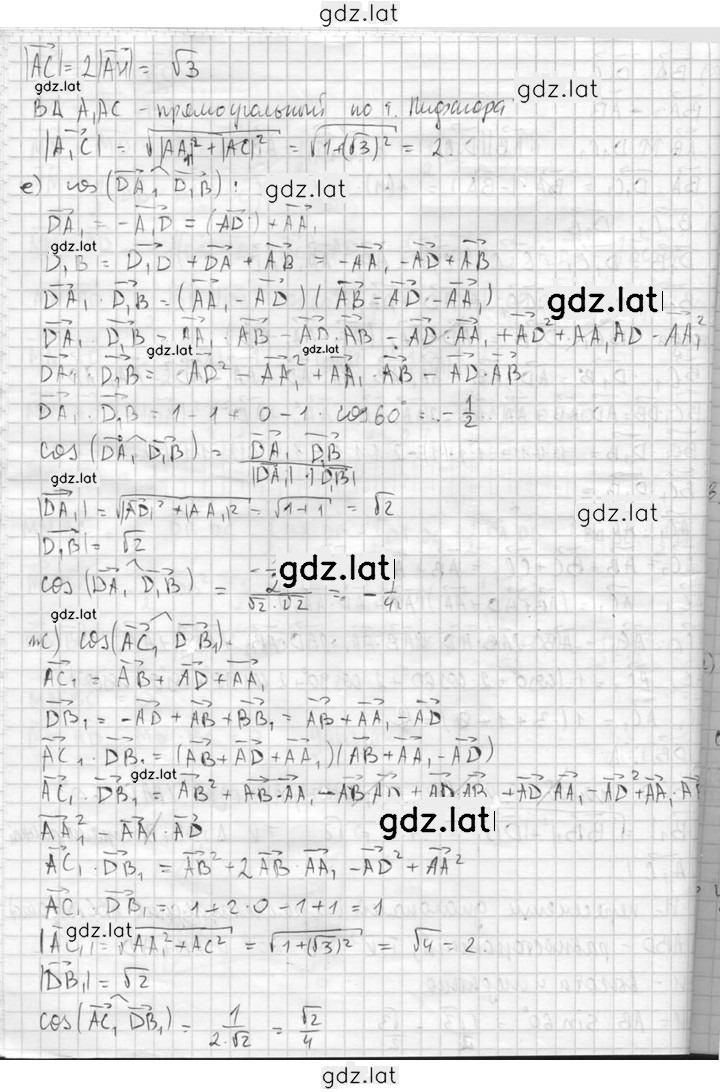 gdz.lat
|AC| = 2|AH| = √3
gdz.lat
gdz.lat
В Δ A₁AC - прямоугольный по т. Пифагора
|A₁C| = √|AA₁|² + |AC|² = √1+(√3)² = 2.
е) cos (DA₁ D₁B) :
gdz.lat
DA₁ = -A₁D = (-AD) + AA₁
gdz.lat
D₁B = D₁D + DA + AB = -AA₁ - AD + AB
DA₁ · D₁B = (AA₁ - AD) (AB - AD - AA₁)
gdz.lat
DA₁ · D₁B = AA₁ · AB - AD · AB - AD · AA₁ + AD² + AA₁ AD - AA₁²
gdz.lat
gdz.lat
DA₁ · D₁B = AD² - AA₁² + AA₁ · AB - AD · AB
DA₁ · D₁B = 1 - 1 + 0 - 1 · cos 60° = - 1/2
cos (DA₁ D₁B) = DA₁ · D₁B / |DA₁| · |D₁B|
gdz.lat
|DA₁| = √|AD|² + |AA₁|² = √1+1 = √2
gdz.lat
|D₁B| = √2
gdz.lat
cos (DA₁ D₁B) = -1/2 / √2 · √2 = - 1/4
gdz.lat
ж) cos (AC₁ DB₁)
AC₁ = AB + AD + AA₁
DB₁ = -AD + AB + BB₁ = AB + AA₁ - AD
AC₁ · DB₁ = (AB + AD + AA₁) (AB + AA₁ - AD)
gdz.lat
AC₁ · DB₁ = AB² + AB·AA₁ - AB·AD + AD·AB + AD·AA₁ - AD² + AA₁·AB
gdz.lat
AA₁² - AA₁·AD
AC₁ · DB₁ = AB² + 2AB · AA₁ - AD² + AA²
AC₁ · DB₁ = 1 + 2·0 - 1 + 1 = 1
gdz.lat
|AC₁| = √AA₁² + AC² = √1+(√3)² = √4 = 2
|DB₁| = √2
cos (AC₁ DB₁) = 1 / 2·√2 = √2/4
gdz.lat